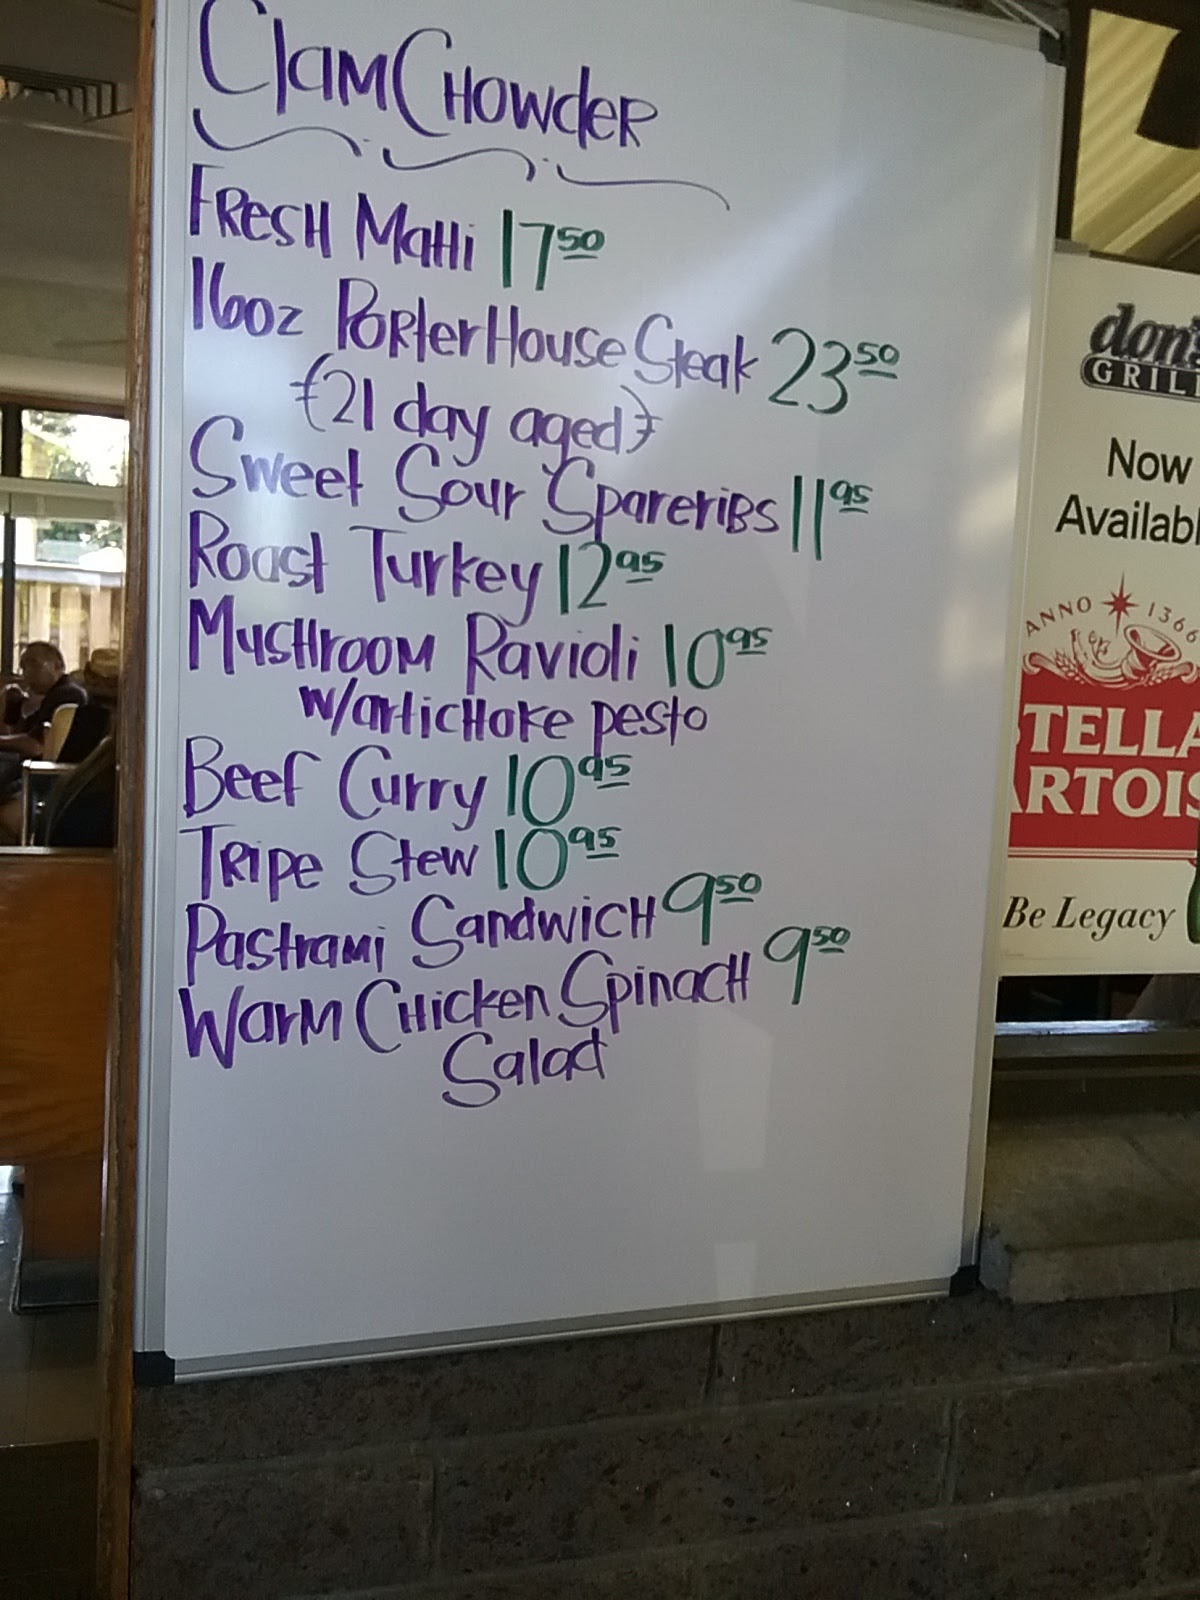 Clam Chowder
Fresh Mahi 17 50
16oz Porter House Steak 23 50
(21 day aged)
Sweet Sour Spareribs 11 95
Roast Turkey 12 95
Mushroom Ravioli 10 95
w/artichoke pesto
Beef Curry 10 95
Tripe Stew 10 95
Pastrami Sandwich 9 50
Warm Chicken Spinach 9 50
Salad
don's
GRILL
Now
Availabl
ANNO 1366
STELLA
ARTOIS
Be Legacy